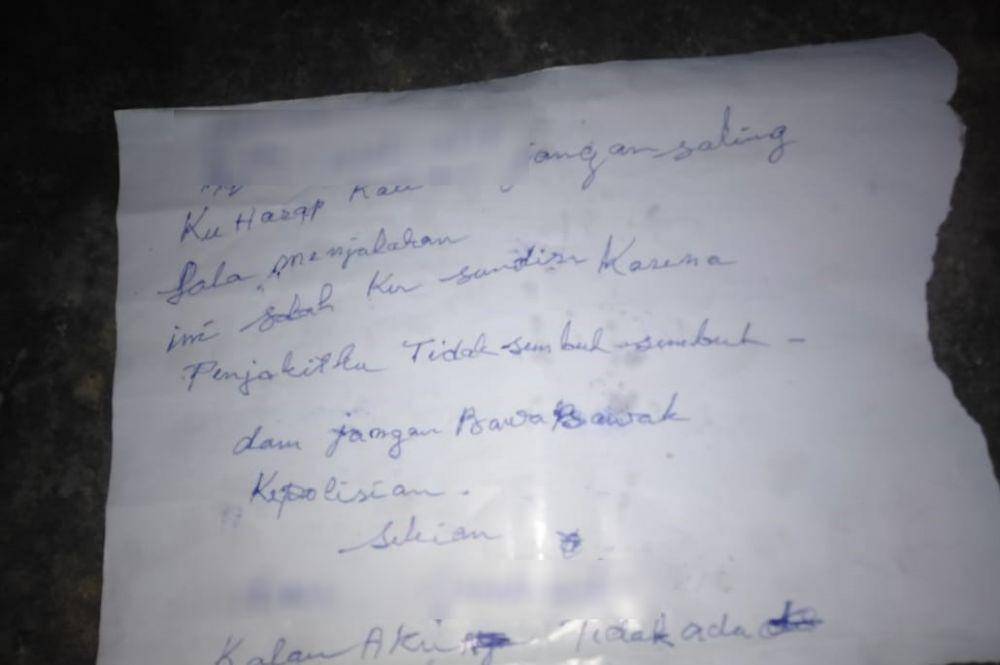 jangan saling
Ku Harap Kau
Sala menjalakan
ini salah Ku sundiri Karena
Penjakitku Tidak sembuh-sembuh -
dam jangan Bawa Bawak
Kepolisian.
Sekian
Kalau Aku Tidak ada